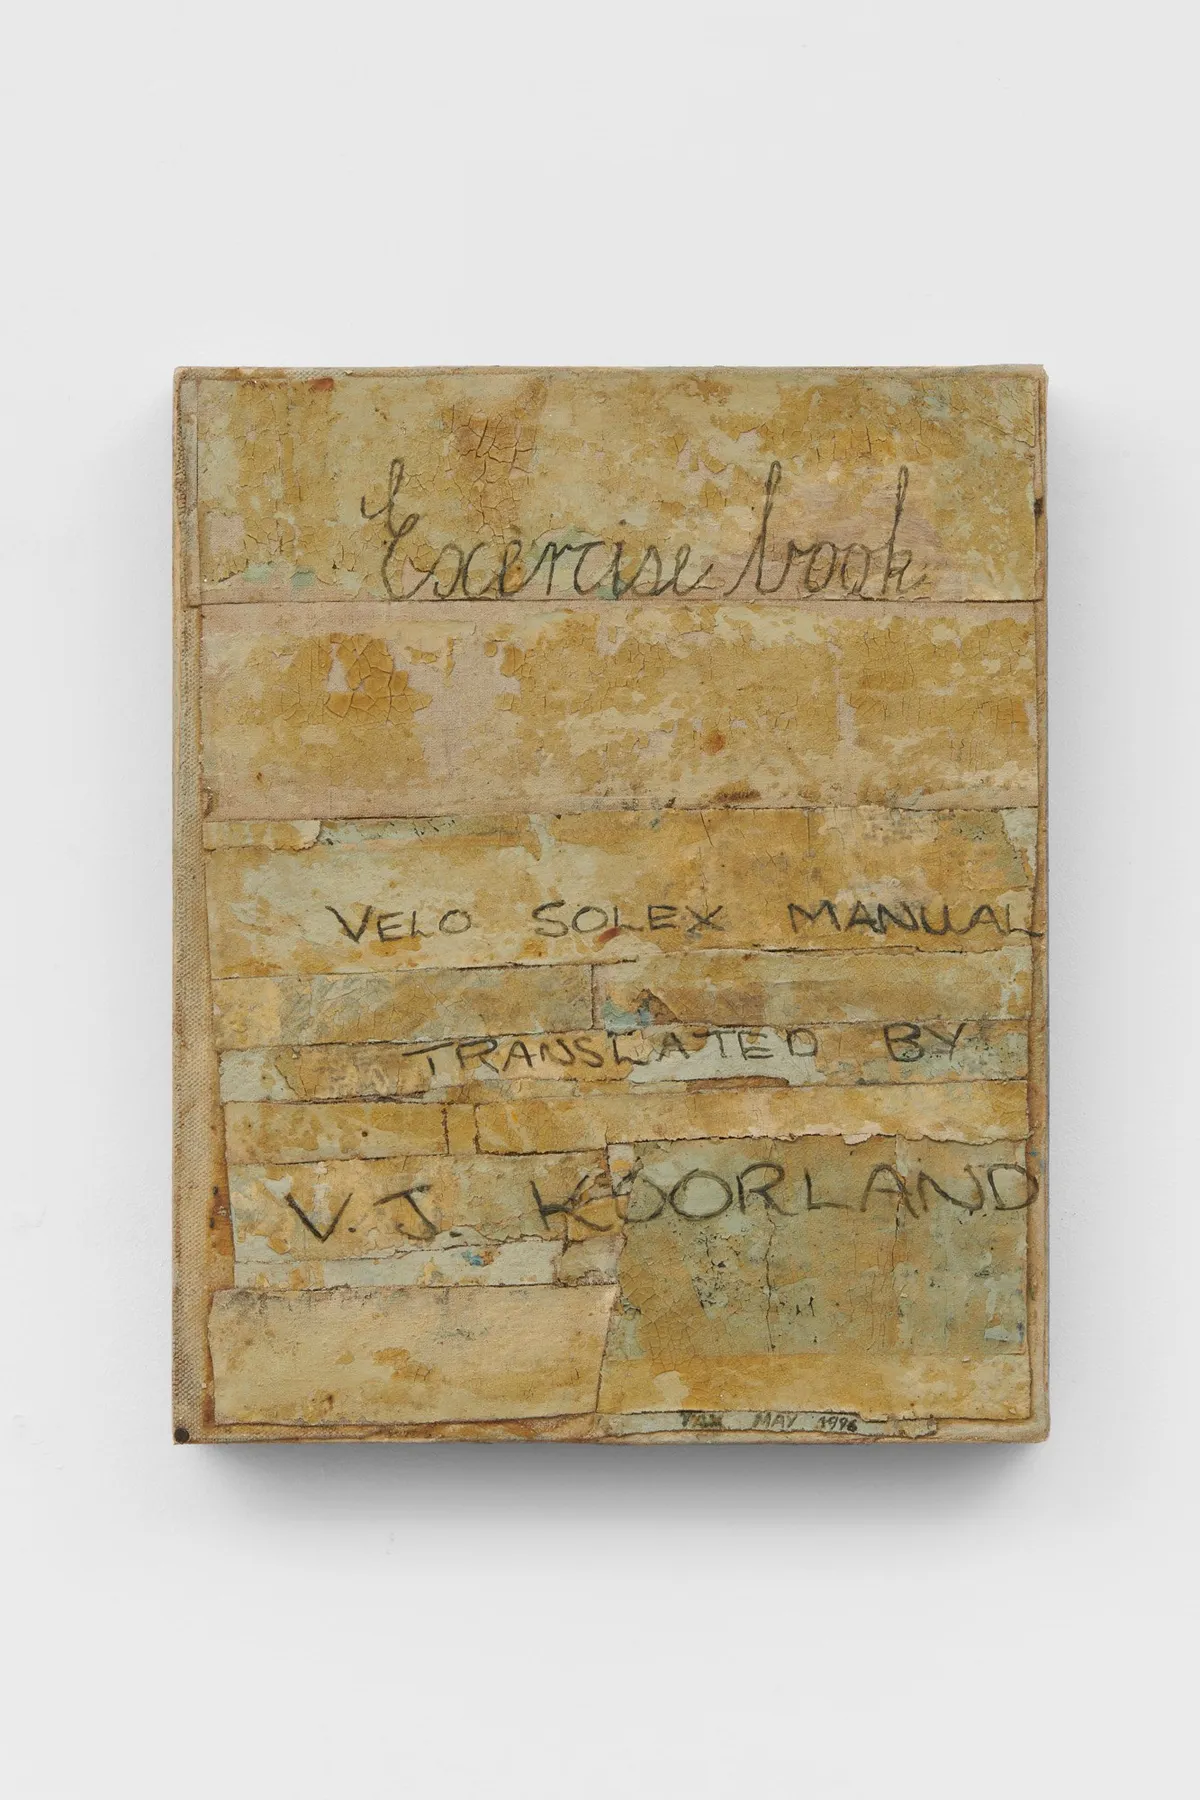 Exercise book
VELO SOLEX MANUAL
TRANSLATED BY
V.J. KOORLAND
MAY 1996